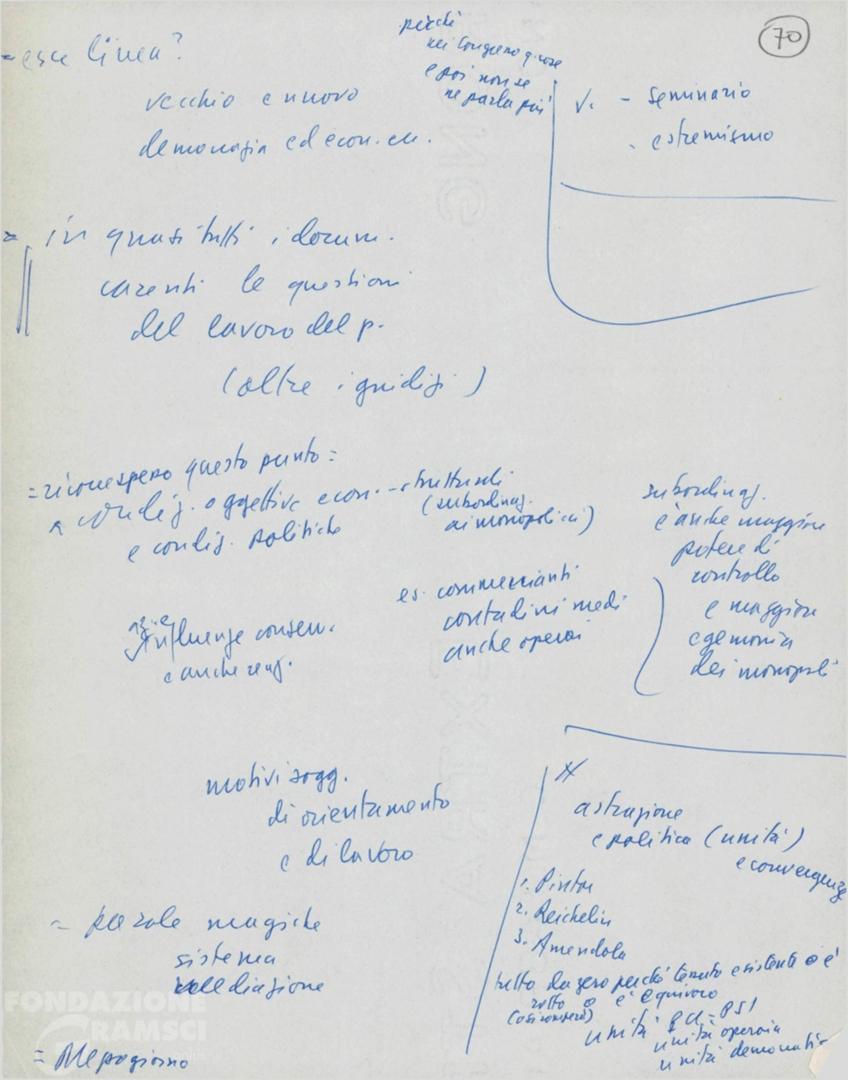 70
= esce linea?
vecchio e nuovo
democrazia ed econ. cu.
perché
nei Congressi q. cose
e poi non se
ne parla più
V. - seminario
- estremismo
= in quasi tutti i docum.
carenti le questioni
del lavoro del p.
(oltre i giudizi)
= questo punto =
condiz. oggettive econ. - strutturali
(subordinaz.
ai monopoli)
e condiz. politiche
subordinaz.
è anche maggiore
potere di
controllo
e maggiore
egemonia
dei monopoli
es. commercianti
contadini medi
anche operai
influenze conserv.
e anche reaz.
motivi sogg.
di orientamento
e di lavoro
= parole magiche
sistema
mediazione
= Mezzogiorno
astrazione
e politica (unità)
e convergenze
1. Pintor
2. Reichlin
3. Amendola
tutto da zero perché tessuto esistente o è
rotto o è equivoco
unità PCI-PSI
unità operaia
unità democratic
FONDAZIONE
GRAMSCI